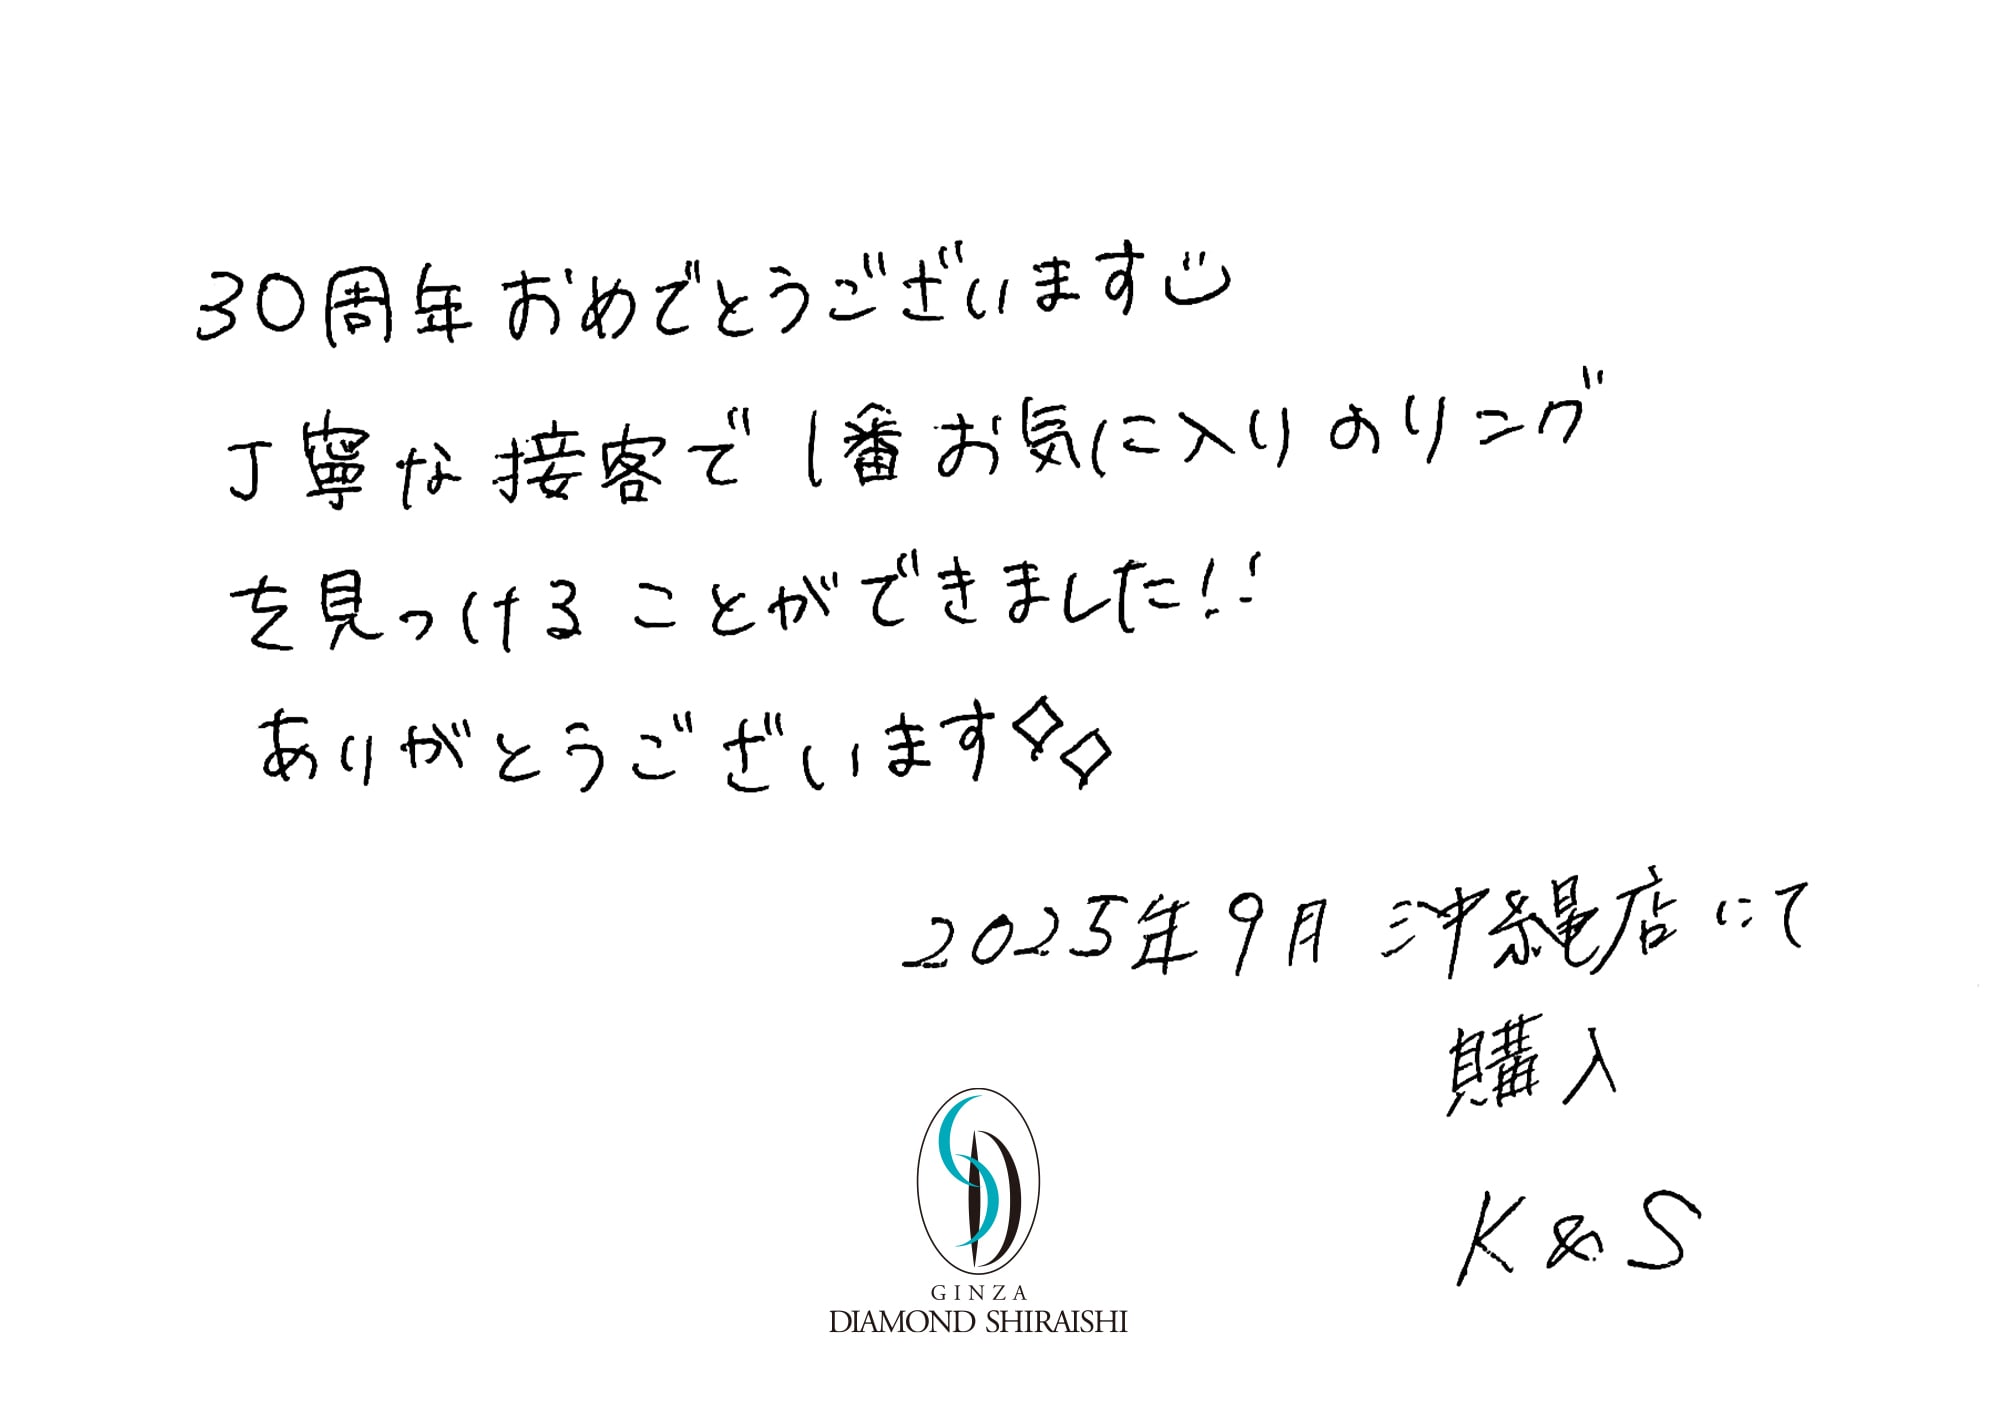 30周年おめでとうございます
丁寧な接客で1番お気に入りのリング
を見つけることができました!!
ありがとうございます
2025年9月 沖縄店にて
購入
K&S
GINZA
DIAMOND SHIRAISHI